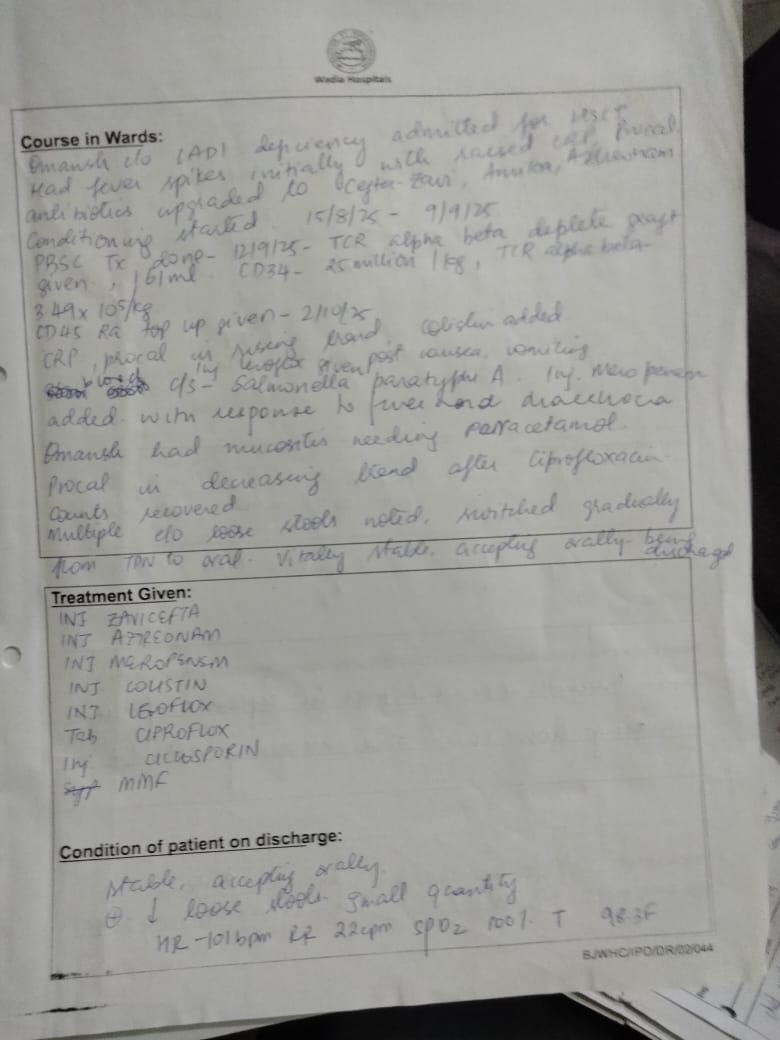 Wadia Hospitals
Course in Wards:
Omansh c/o LAD1 deficiency admitted for HSCT
Had fever spikes initially with raised CRP, Procal.
antibiotics upgraded to Ceftaz-Zavi, Amika, Aztreonam
Conditioning started 15/8/25 - 9/9/25
PBSC Tx done - 12/9/25 - TCR alpha beta deplete graft
given, 161ml. CD34 - 25 million/kg, TCR alpha beta-
3.49 x 10^5/kg
CD45 RA top up given - 2/10/25
CRP, procal in rising trend, colistin added
Inj levoflox given post nausea, vomiting
blood c/s - Salmonella paratyphi A. Inj. Meropenem
added. with response to fever and diarrhoea
Omansh had mucositis needing paracetamol.
Procal in decreasing trend after Ciprofloxacin.
Counts recovered
Multiple c/o loose stools noted. switched gradually
from TPN to oral. Vitally stable, accepting orally being
discharged
Treatment Given:
INJ ZAVICEFTA
INJ AZTREONAM
INJ MEROPENEM
INJ. COLISTIN
INJ LEVOFLOX
Tab CIPROFLOX
Inj CICLOSPORIN
MMF
Condition of patient on discharge:
Stable, accepting orally.
⊕ ↓ loose stools. small quantity
HR - 101bpm RR 22cpm SPO2 100% T 98.3F
BJWHC/IPD/DR/02/044